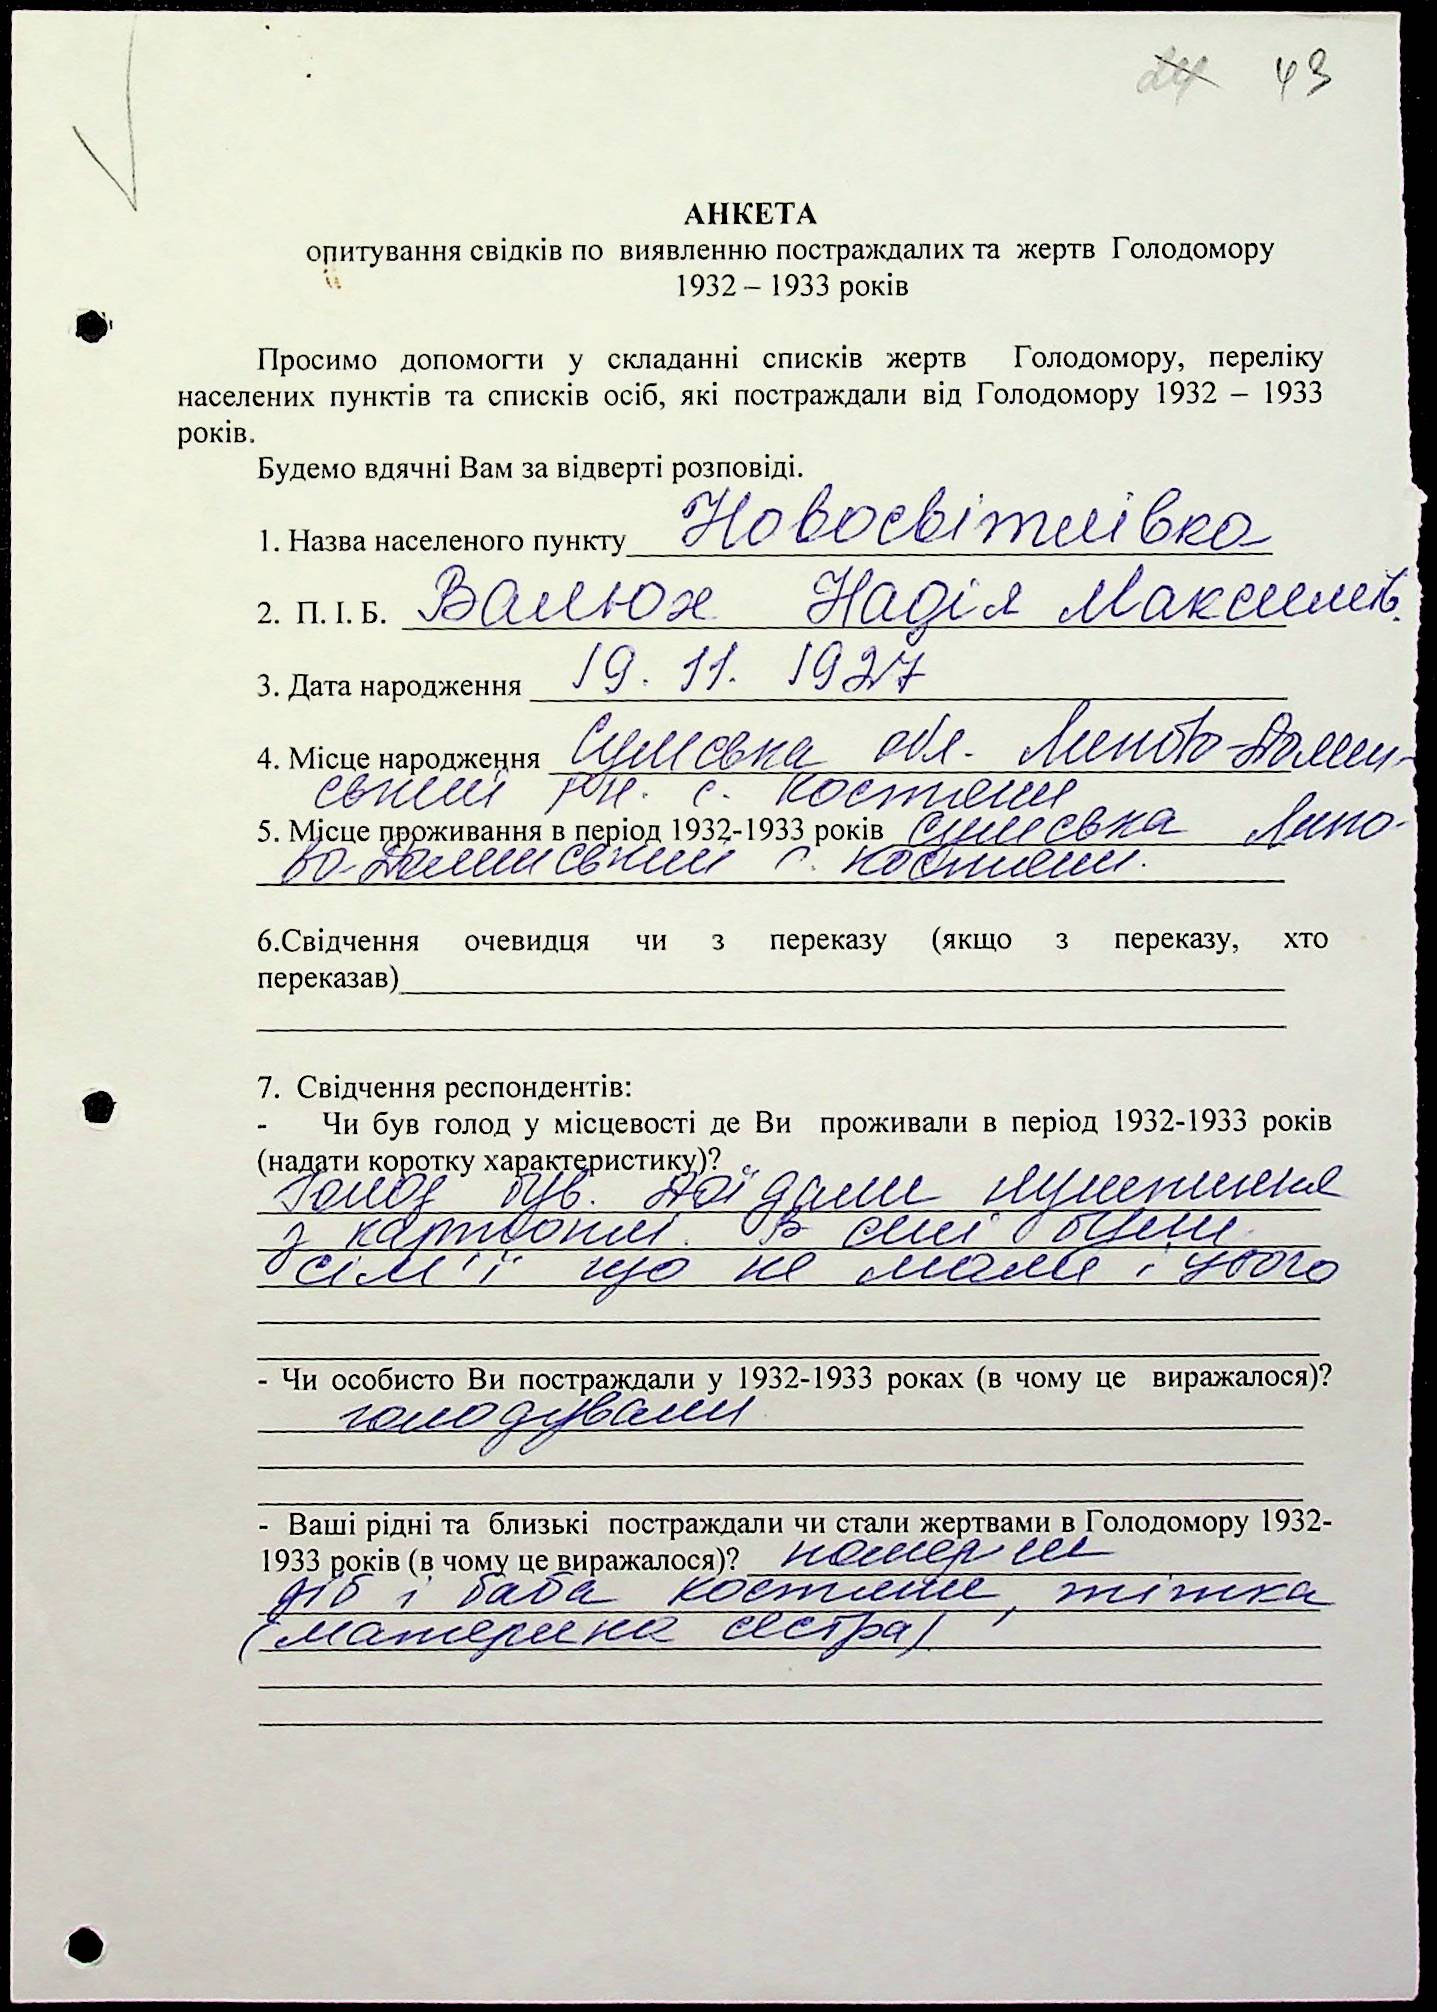 24 43
АНКЕТА
опитування свідків по виявленню постраждалих та жертв Голодомору
1932 – 1933 років
Просимо допомогти у складанні списків жертв Голодомору, переліку
населених пунктів та списків осіб, які постраждали від Голодомору 1932 – 1933
років.
Будемо вдячні Вам за відверті розповіді.
1. Назва населеного пункту Новосвітлівка
2. П. І. Б. Валюх Надія Максимів.
3. Дата народження 19. 11. 1927
4. Місце народження Сумська обл. Липово-Долин-
ський рн. с. Костяни
5. Місце проживання в період 1932-1933 років Сумська Липо-
во-Долинський с. Костяни.
6.Свідчення очевидця чи з переказу (якщо з переказу, хто
переказав)
7. Свідчення респондентів:
- Чи був голод у місцевості де Ви проживали в період 1932-1933 років
(надати коротку характеристику)?
Голод був. Доїдали лушпиння
з картоплі. В селі були
сім'ї що не мали і цього
- Чи особисто Ви постраждали у 1932-1933 роках (в чому це виражалося)?
голодували
- Ваші рідні та близькі постраждали чи стали жертвами в Голодомору 1932-
1933 років (в чому це виражалося)? померли
дід і баба Костяни, тітка
(материна сестра)